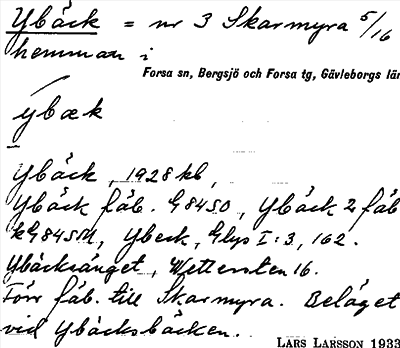 Ybäck = nr 3 Skarmyra 5/16
hemman i
Forsa sn, Bergsjö och Forsa tg, Gävleborgs län
ybæk
Ybäck, 1928 kb,
Ybäck fäb. G84SO, Ybäck 2 fäb
kG84SM, Ybeck, Glys I:3, 162.
Ybäcksänget, Wettersten 16.
Förr fäb. till Skarmyra. Beläget
vid Ybäcksbäcken.
LARS LARSSON 1933